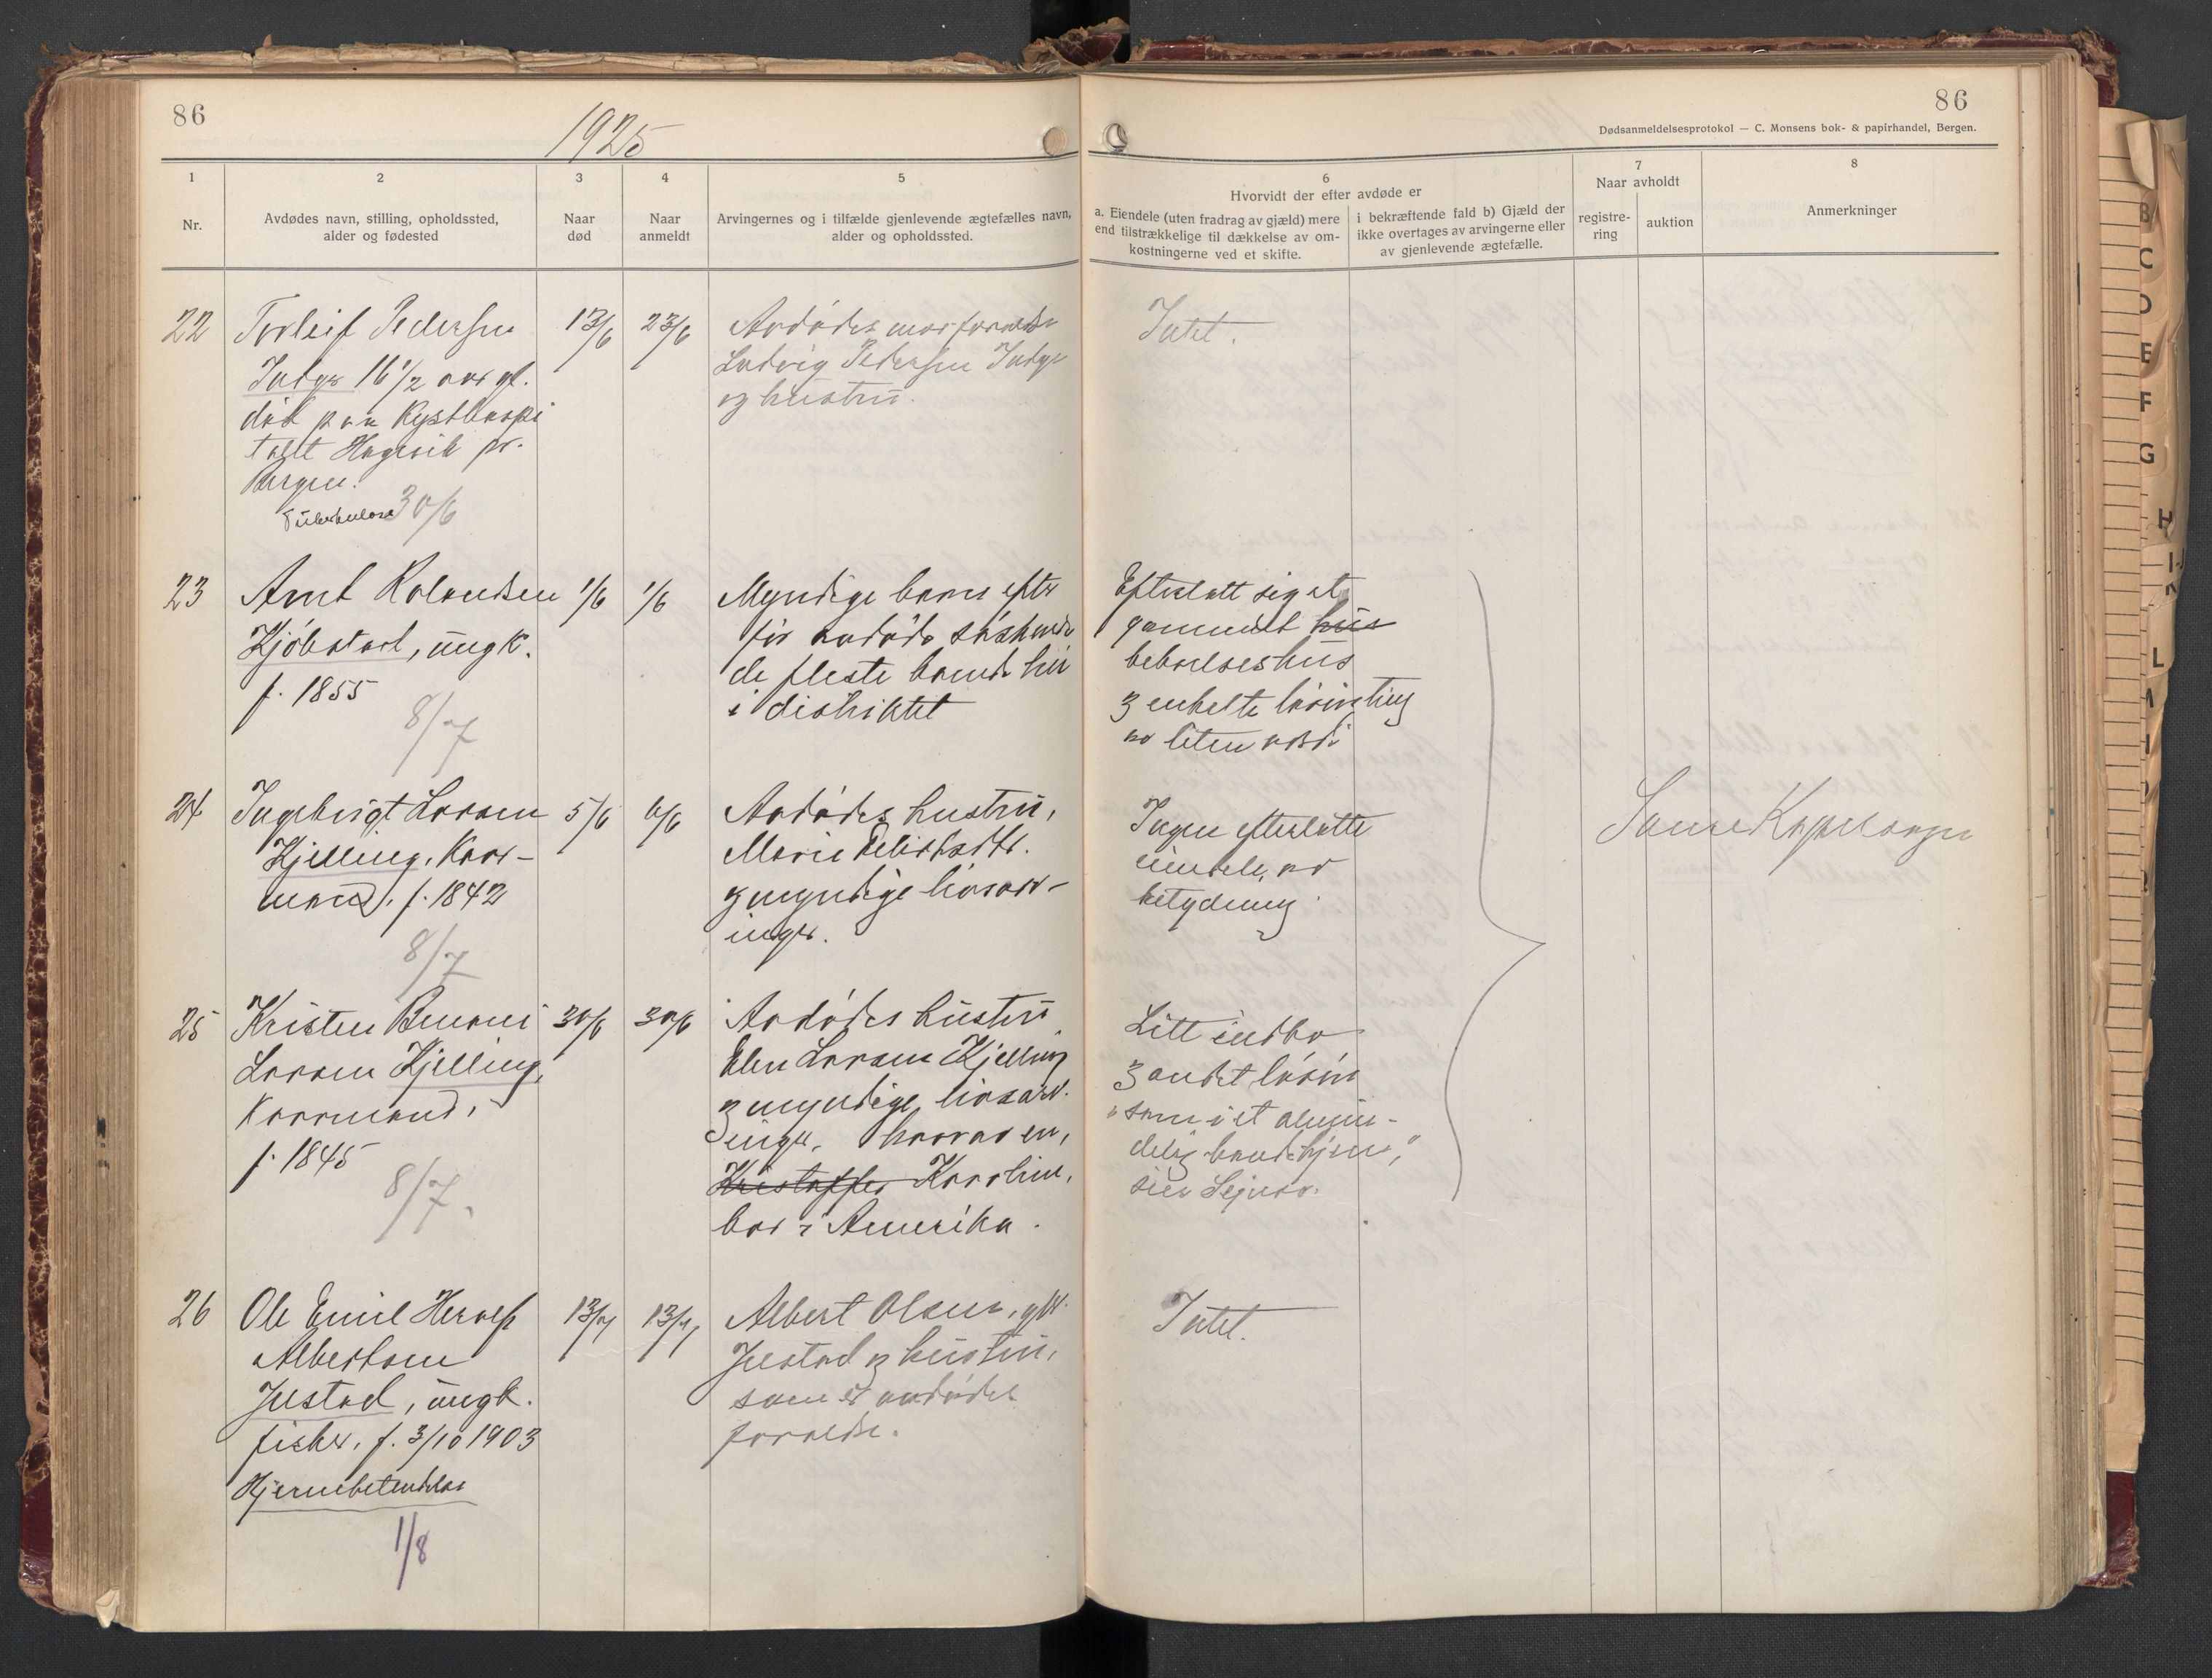 86
1925
86
Dødsanmeldelsesprotokol — C. Monsens bok- & papirhandel, Bergen.
1
2
3
4
5
6
7
8
Nr.
Avdødes navn, stilling, opholdssted,
alder og fødested
Naar
død
Naar
anmeldt
Arvingernes og i tilfælde gjenlevende ægtefælles navn,
alder og opholdssted.
Hvorvidt der efter avdøde er
a. Eiendele (uten fradrag av gjæld) mere
end tilstrækkelige til dækkelse av om-
kostningerne ved et skifte.
i bekræftende fald b) Gjæld der
ikke overtages av arvingerne eller
av gjenlevende ægtefælle.
Naar avholdt
registre-
ring
auktion
Anmerkninger
22
Torleif Pedersen
Indyr 16 1/2 aar gl.
død paa Kysthospi
talet Hagevik pr.
Bergen.
Tuberkulose
30/6
13/6
23/6
Avdødes
Ludvig Pedersen Indyr
og hustru.
Intet.
23
Arnt Rolandsen
Kjøbstad, ungk.
f. 1855
8/7
1/6
1/6
Myndige barn efter
før avdøde søskende
de fleste boende her
i distriktet
Efterlatt sig et
gammelt hus
beboelseshus
og enkelte løsøreting
av liten værdi
24
Ingebrigt Larsen
Kjelling, Kaar-
mand, f. 1842
8/7
5/6
6/6
Avdødes hustru,
Marie
og myndige livsarv-
inger.
Ingen efterlatte
eiendele av
betydning
25
Kristen Benoni
Larsen Kjelling,
Kaarmand,
f. 1845
8/7.
30/6
30/6
Avdødes hustru
Elen Larsen Kjelling
og myndige livsarv-
inger, hvorav en,
Kristoffer Karoline,
bor i Amerika.
Litt indbo
og andet løsøre
"som i et almin-
delig bondehjem",
sier
26
Ole Emil Herolf
Albertsen
Jestad, ungk.
fisker, f. 3/10 1903
Hjernebetændelse
1/8
13/7
13/7
Albert Olsen,
Jestad og hustru,
som er avdødes
forældre.
Intet.